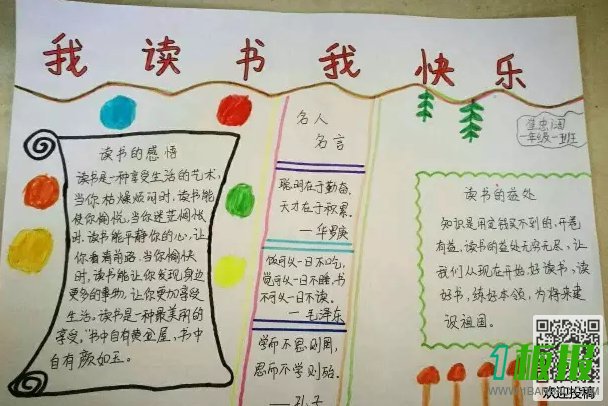 我读书我快乐
一年级一班
读书的感悟
读书是一种享受生活的艺术,
当你枯燥烦闷时,读书能
使你愉悦,当你迷茫惆怅
时,读书能平静你的心,让
你看清前路,当你愉快
时,读书能让你发现身边
更多的事物,让你更加享受
生活。读书是一种最美丽的
享受。"书中自有黄金屋,书中
自有颜如玉。
名人
名言
聪明在于勤奋,
天才在于积累。
—华罗庚
饭可以一日不吃,
觉可以一日不睡,书
不可以一日不读。
—毛泽东
学而不思则罔,
思而不学则殆。
—孔子
读书的益处
知识是用金钱买不到的,开卷
有益。读书的益处无穷无尽,让
我们从现在开始好读书,读
好书,练好本领,为将来建
设祖国。
1板报
欢迎投稿